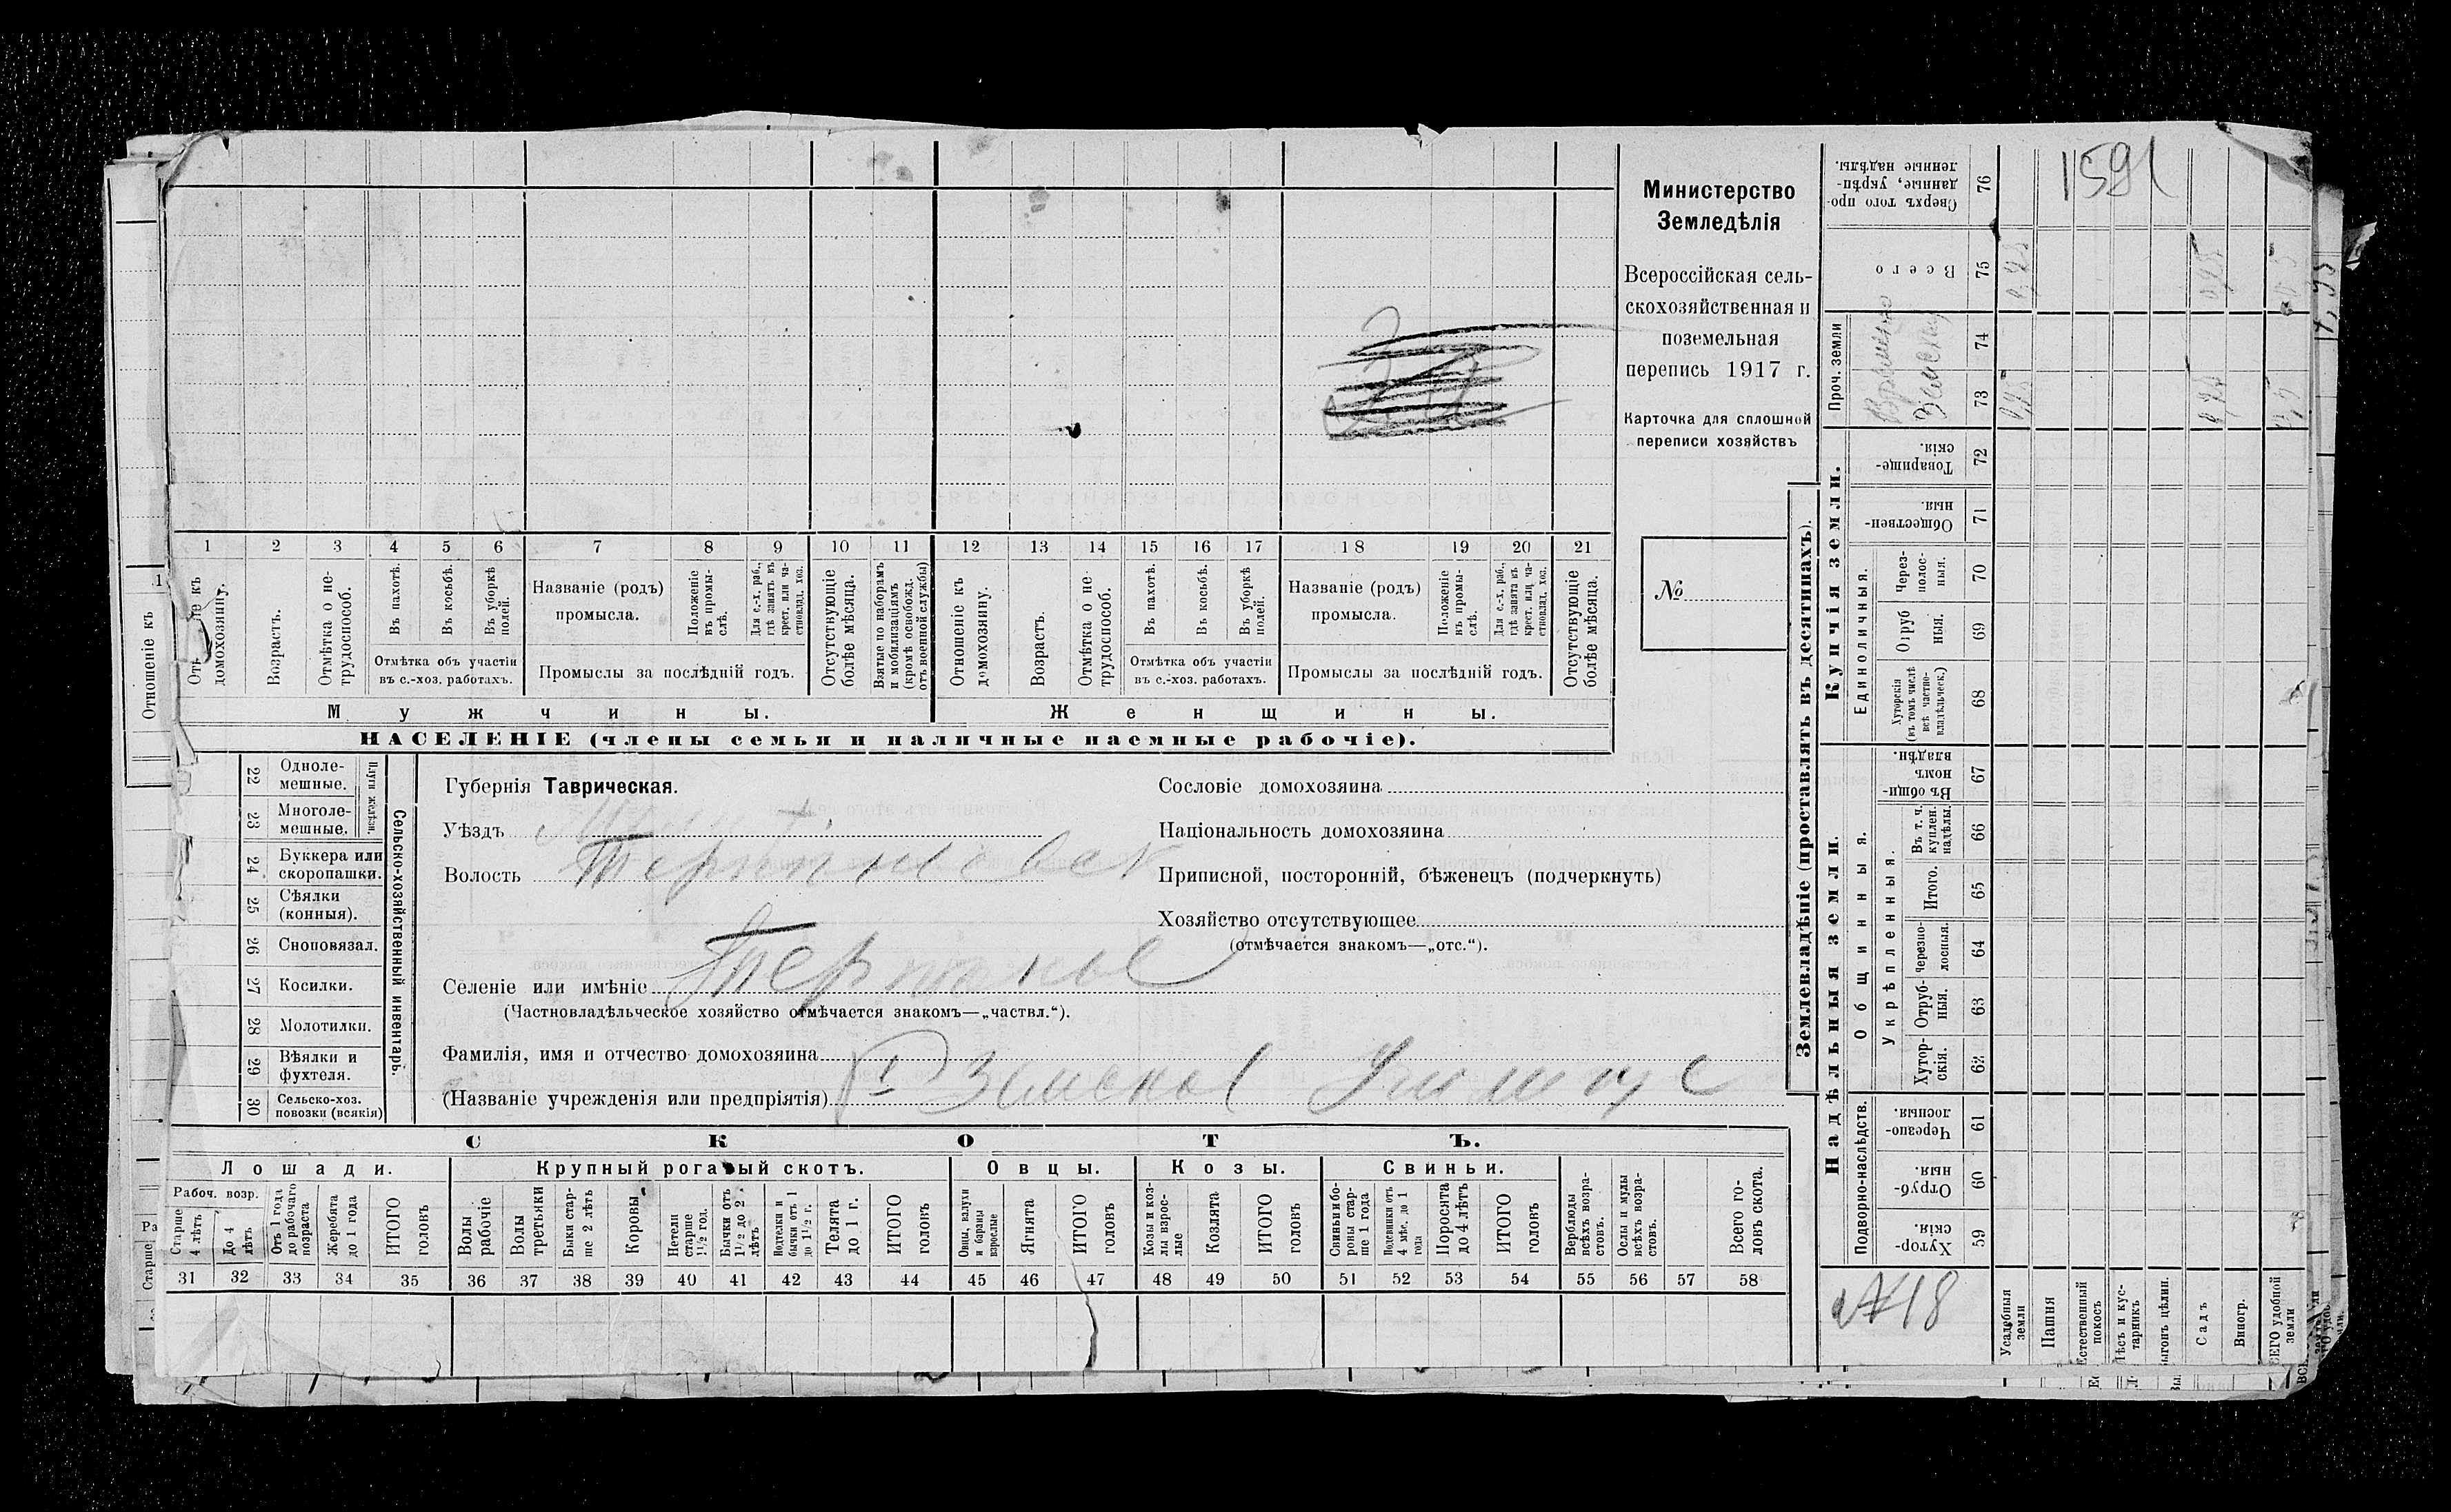 1591
Министерство
Земледѣлія
Всероссійская сель-
скохозяйственная и
поземельная
перепись 1917 г.
Карточка для сплошной
переписи хозяйствъ
№
1 2 3 4 5 6 7 8 9 10 11 12 13 14 15 16 17 18 19 20 21
домохозяину.
Возрастъ.
Отмѣтка о не-
трудоспособ.
Въ пахотѣ.
Въ косьбѣ.
Въ уборкѣ
полей.
Отмѣтка объ участіи
въ с.-хоз. работахъ.
Названіе (родъ)
промысла.
Положеніе
въ промы-
слѣ.
Для с.-х. раб.,
гдѣ занятъ въ
крест. или ча-
стновлад. хоз.
Промыслы за послѣдній годъ.
Отсутствующіе
болѣе мѣсяца.
Взятые по наборамъ
и мобилизаціямъ
(кромѣ освобожд.
отъ военной службы)
Отношеніе къ
домохозяину.
Возрастъ.
Отмѣтка о не
трудоспособ.
Въ пахотѣ.
Въ косьбѣ.
Въ уборкѣ
полей.
Отмѣтка объ участіи
въ с.-хоз. работахъ.
Названіе (родъ)
промысла.
Положеніе
въ промы-
слѣ.
Для с.-х. раб.,
гдѣ занята въ
крест. или ча-
стновлад. хоз.
Промыслы за послѣдній годъ.
Отсутствующіе
болѣе мѣсяца.
Мужчины.
Женщины.
НАСЕЛЕНІЕ (члены семьи и наличные наемные рабочіе).
22 Одноле-
мешные.
23 Многоле-
мешные.
Плуги желѣзн.
24 Буккера или
скоропашки.
25 Сѣялки
(конныя).
26 Сноповязал.
27 Косилки.
28 Молотилки.
29 Вѣялки и
фухтеля.
30 Сельско-хоз.
повозки (всякія)
Сельско-хозяйственный инвентарь.
Губернія Таврическая.
Уѣздъ
Волость
Селеніе или имѣніе
(Частновладѣльческое хозяйство отмѣчается знакомъ—„частвл.“).
Фамилія, имя и отчество домохозяина
(Названіе учрежденія или предпріятія)
Сословіе домохозяина
Національность домохозяина
Приписной, посторонній, бѣженецъ (подчеркнуть)
Хозяйство отсутствующее
(отмѣчается знакомъ—„отс.“).
СКОТЪ.
Лошади.
Крупный рогатый скотъ.
Овцы.
Козы.
Свиньи.
Рабоч. возр.
Старше
4 лѣтъ
До 4
лѣтъ
Отъ 1 года
до рабочаго
возраста
Жеребята
до 1 года
ИТОГО
головъ
Волы
рабочіе
Волы
третьяки
Быки стар-
ше 2 лѣтъ
Коровы
Нетели
старше
1½ год.
Бычки отъ
1½ до 2
лѣтъ
Подтелки и
бычки отъ 1
до 1½ г.
Телята
до 1 г.
ИТОГО
головъ
Овцы, валухи
и бараны
взрослые
Ягнята
ИТОГО
головъ
Козы и коз-
лы взрос-
лые
Козлята
ИТОГО
головъ
Свиньи и бо-
ровы стар-
ше 1 года
Подсвинки отъ
4 мѣс. до 1
года
Поросята
до 4 лѣтъ
ИТОГО
головъ
Верблюды
всѣхъ возра-
стовъ.
Ослы и мулы
всѣхъ возра-
стовъ.
Всего го-
ловъ скота.
31 32 33 34 35 36 37 38 39 40 41 42 43 44 45 46 47 48 49 50 51 52 53 54 55 56 57 58
Землевладѣніе (проставлять въ десятинахъ).
Сверхъ того про-
данные, укрѣп-
ленные надѣлы.
76
Всего
75
Проч. земли
74
73
Купчія земли.
Товарище-
скія.
72
Обществен-
ныя
71
Единоличныя.
Через-
полос-
ныя.
70
Отруб
ныя.
69
Хуторскія
(въ томъ числѣ
всѣ частно-
владѣльческ.)
68
Надѣльныя земли.
Общинныя.
Въ общи-
номъ
владѣн.
67
Укрѣпленныя.
Въ т. ч.
куплен.
надѣлы.
66
Итого.
65
Черезпо-
лосныя.
64
Отруб-
ныя.
63
Хутор-
скія.
62
Подворно-наслѣдств.
Черезпо-
лосныя.
61
Отруб-
ныя.
60
Хутор-
скія.
59
№18
Усадебныя
земли
Пашня
Естественный
покосъ
Садъ
Виногр.
Отношеніе къ